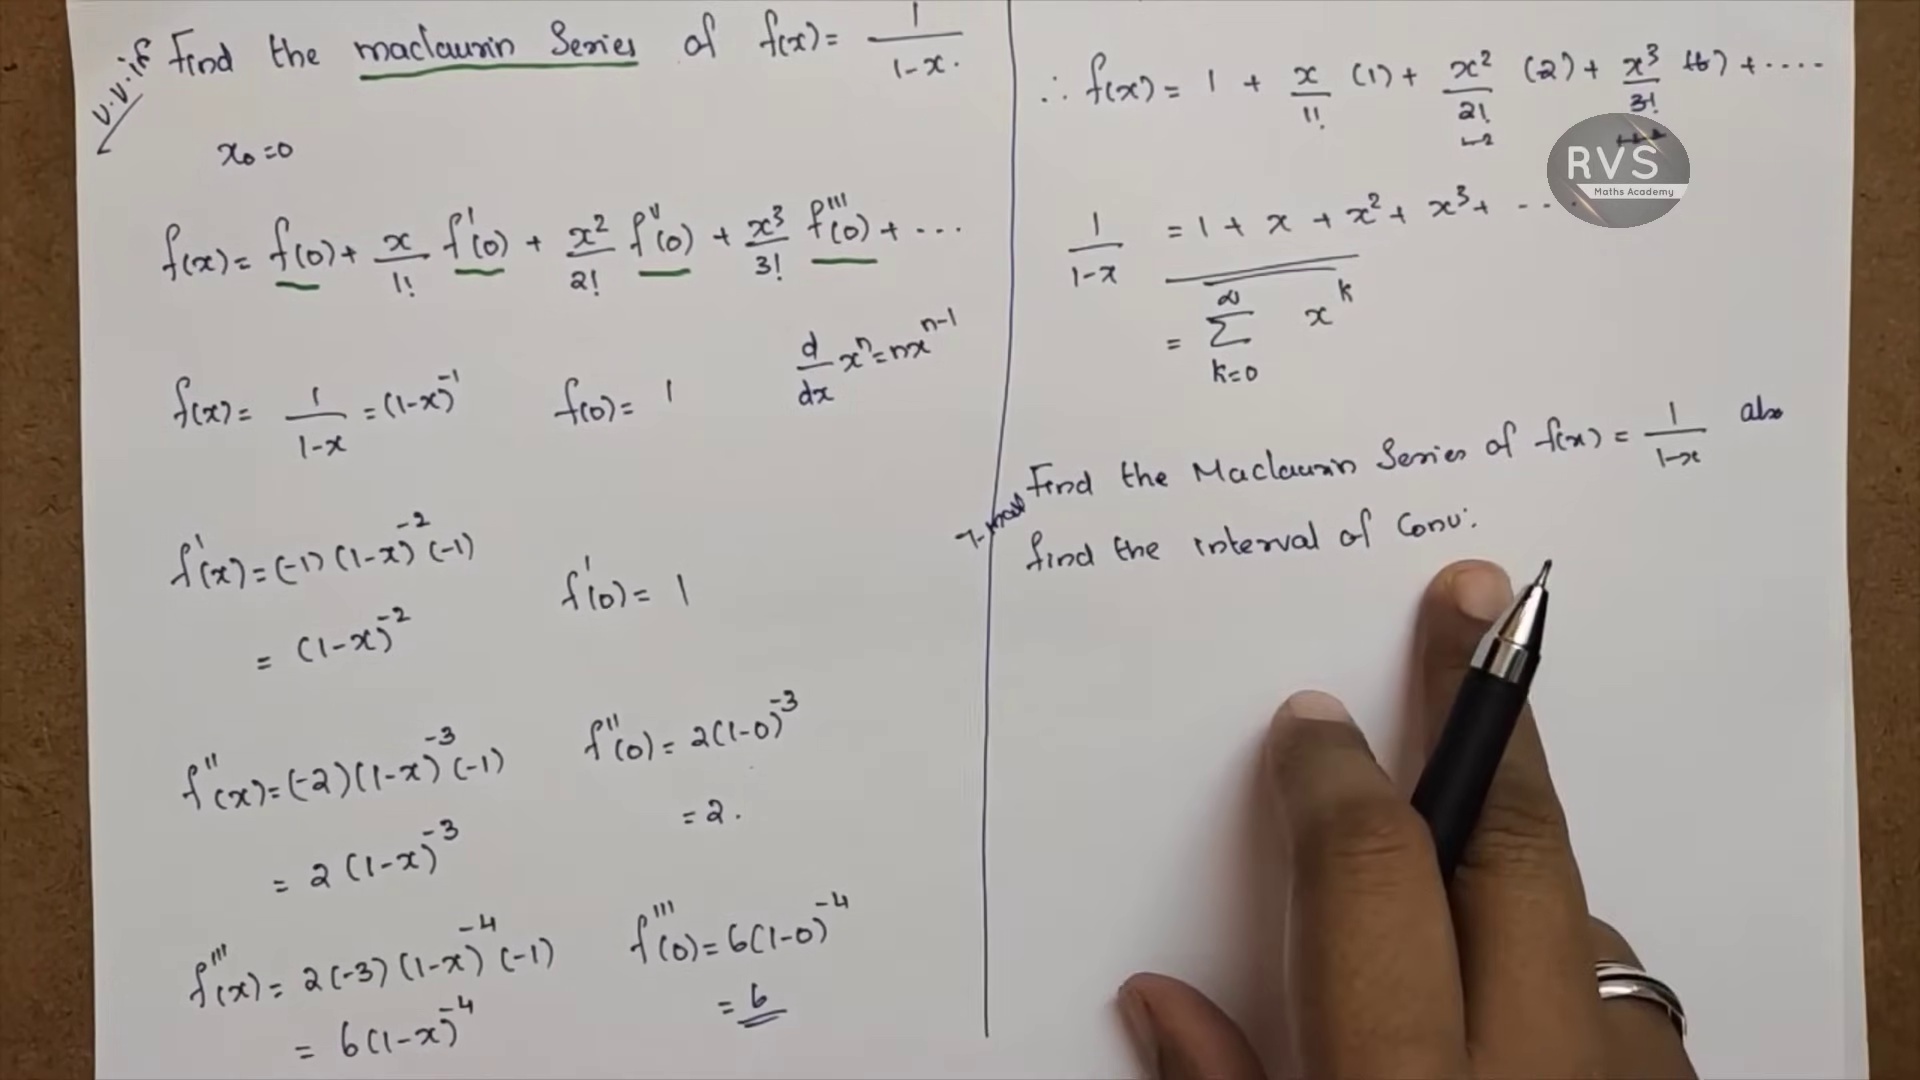 V.V.if Find the maclaurin Series of f(x) = 1/1-x.
x₀ = 0
f(x) = f(0) + x/1! f'(0) + x²/2! f''(0) + x³/3! f'''(0) + ...
d/dx xⁿ = nxⁿ⁻¹
f(x) = 1/1-x = (1-x)⁻¹ f(0) = 1
f'(x) = (-1)(1-x)⁻²(-1)
= (1-x)⁻² f'(0) = 1
f''(x) = (-2)(1-x)⁻³(-1) f''(0) = 2(1-0)⁻³
= 2(1-x)⁻³ = 2.
f'''(x) = 2(-3)(1-x)⁻⁴(-1) f'''(0) = 6(1-0)⁻⁴
= 6(1-x)⁻⁴ = 6
∴ f(x) = 1 + x/1! (1) + x²/2! (2) + x³/3! (6) + ....
RVS
Maths Academy
1/1-x = 1 + x + x² + x³ + ...
= ∞ Σ k=0 xᵏ
Find the Maclaurin Series of f(x) = 1/1-x also
7-mark find the interval of Conv: